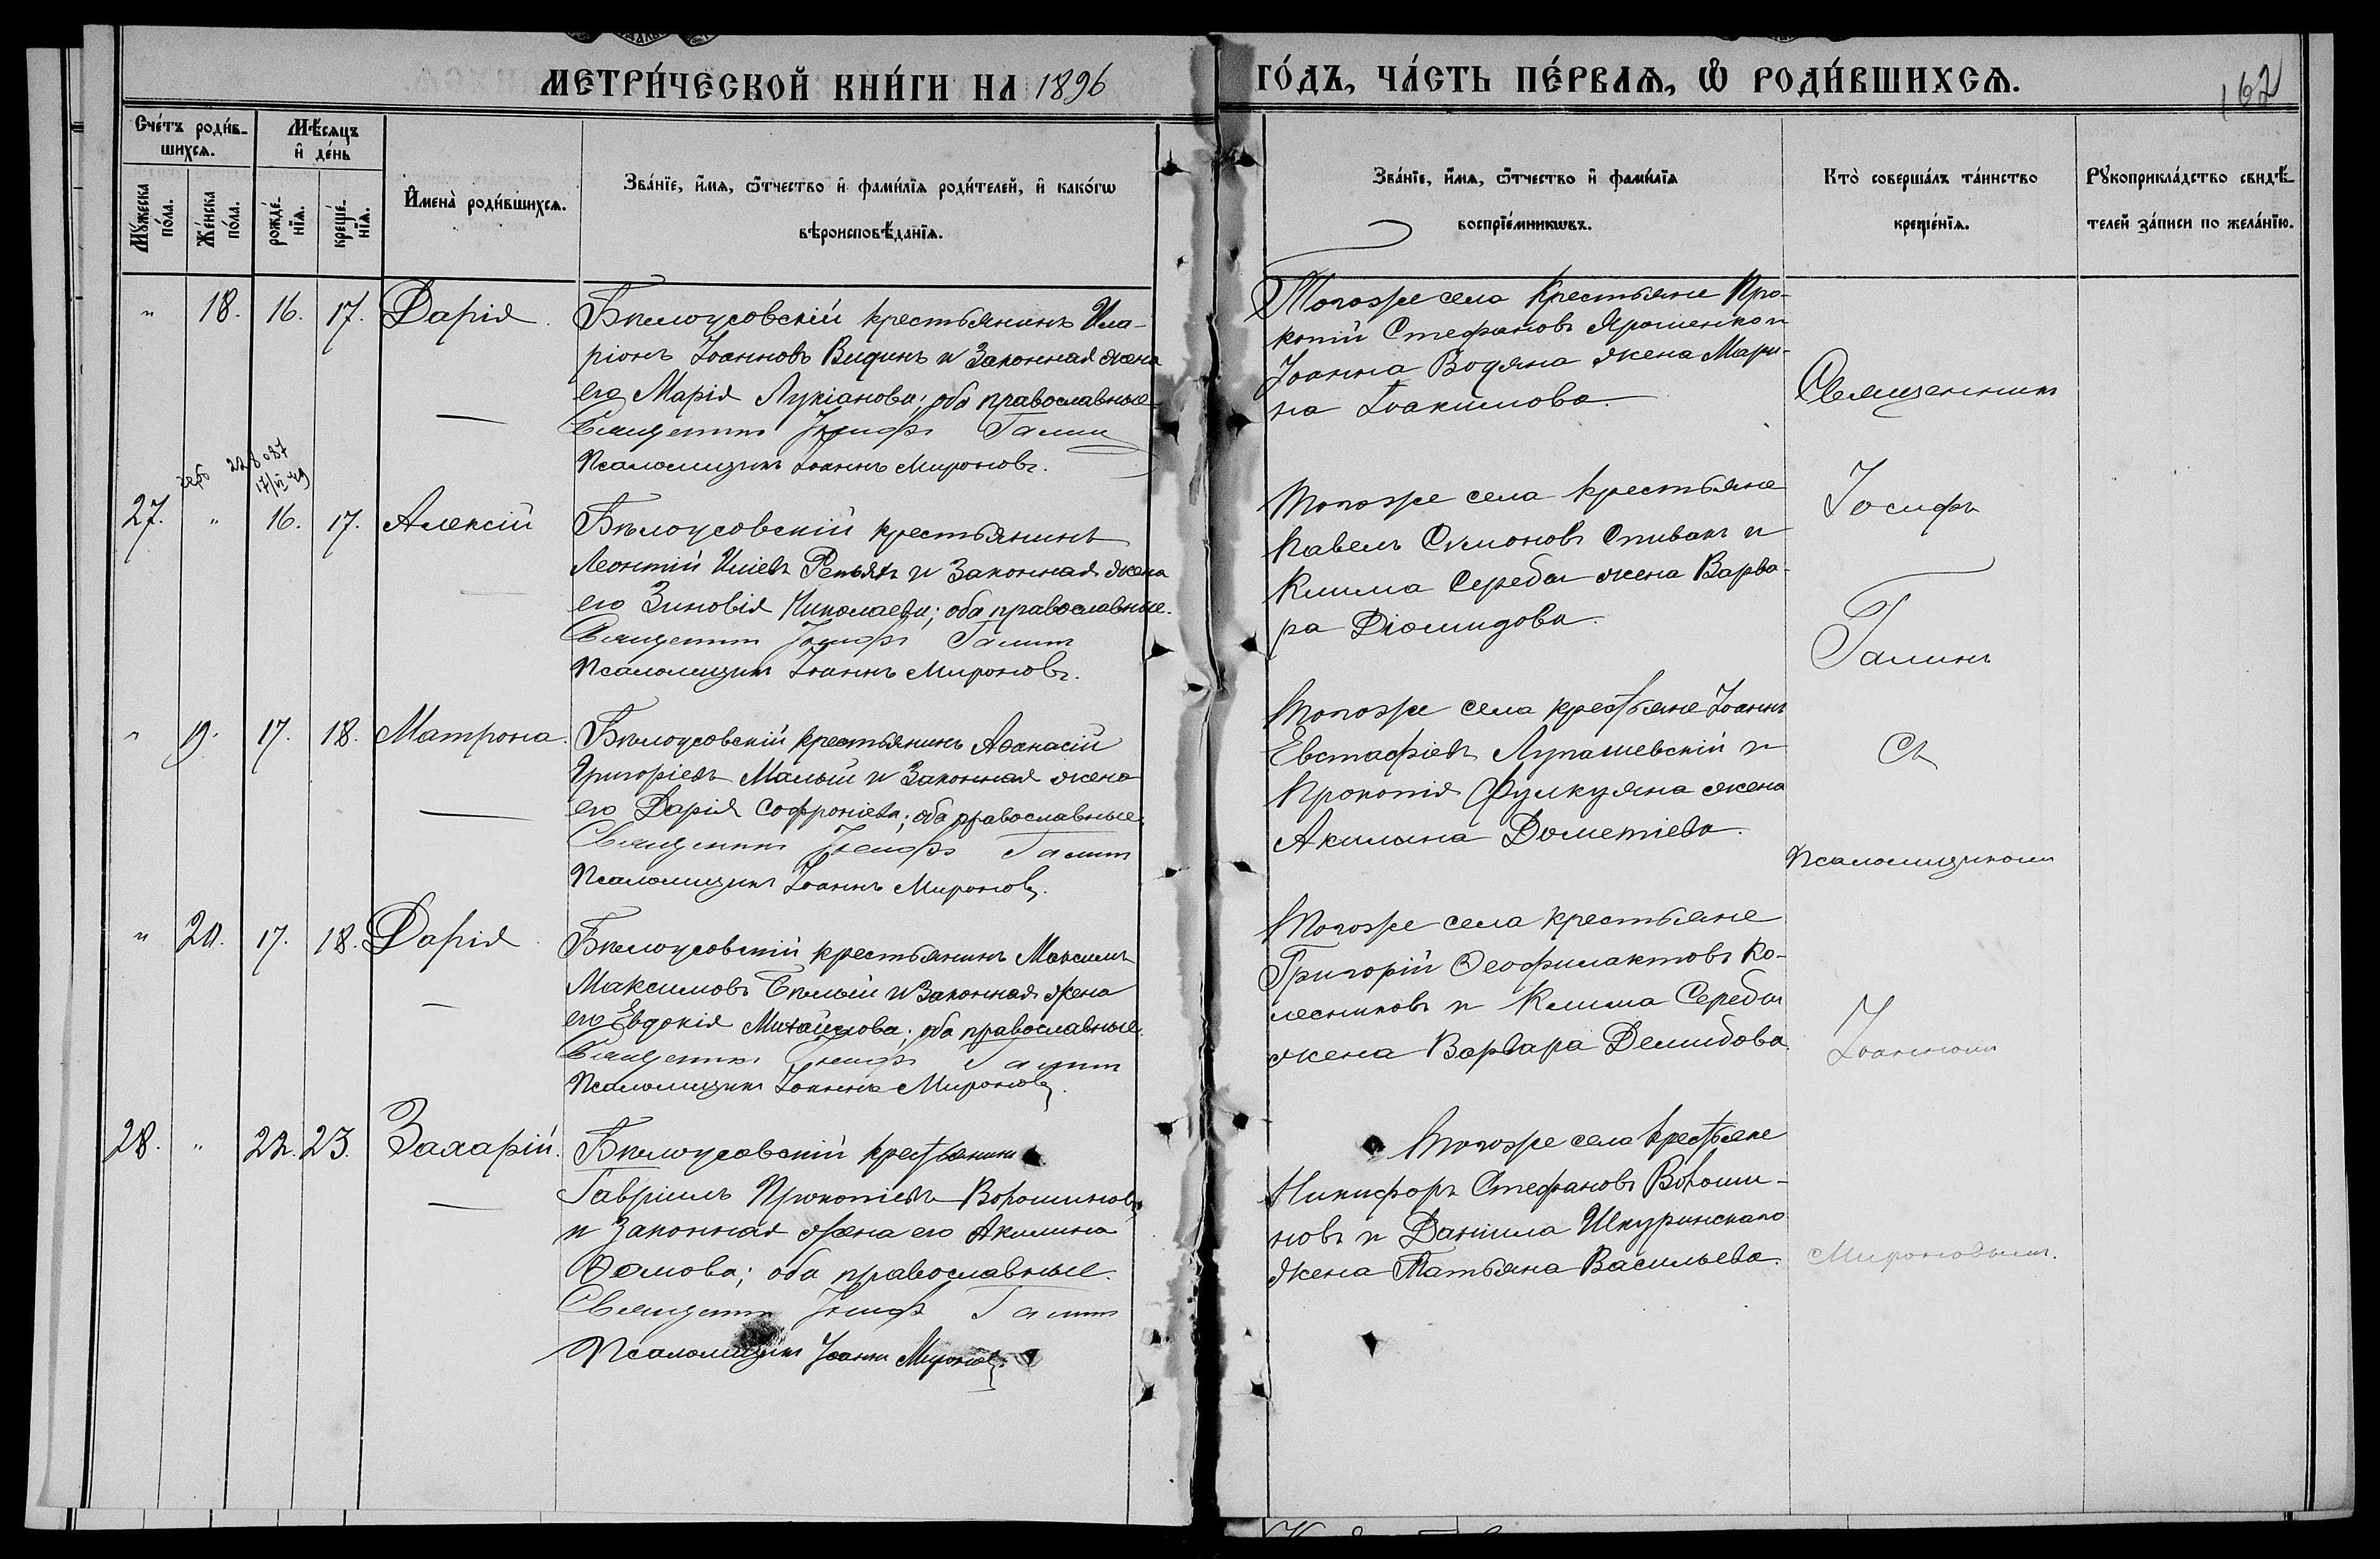 МЕТРИ́ЧЕСКОЙ КНИ́ГИ НА 1896 ГО́ДЪ, ЧА́СТЬ ПЕ́РВАѦ, Ѡ РОДИ́ВШИХСѦ.
162
Счéтъ роди́в-
шихсѧ.
Мѣ́сѧцъ
и҆ дéнь
Мꙋ́жеска
по́ла.
Жéнска
по́ла.
рождé-
нїѧ.
крещé-
нїѧ.
И҆мена̀ роди́вшихсѧ.
Зва́нїе, и҆́мѧ, ѻ҆́тчество и҆ фами́лїѧ роди́телей, и҆ како́гѡ
вѣроисповѣ́данїѧ.
Зва́нїе, и҆́мѧ, ѻ҆́тчество и҆ фами́лїѧ
воспрїе́мникѡвъ.
Кто̀ соверша́лъ та́инство
крещéнїѧ.
Рꙋкоприкла́дство свидѣ́-
телей за́писи по жела́нїю.
" 18. 16. 17. Дарія.
Бѣлоусовскій крестьянинъ Ила-
ріонъ Іоанновъ Видинъ и законная жена
его Марія Лукіанова; оба православные.
Священникъ Іосифъ Галинъ
Псаломщикъ Іоаннъ Мироновъ.
Тогоже села крестьяне Про-
копій Стефановъ Ярошенко и
Іоанна Водяна жена Мари-
на Іоакимова.
Священникъ
Іосифъ
Галинъ
Съ
Псаломщикомъ
Іоанномъ
Мироновымъ.
228087
17/VI 49
27. " 16. 17. Алексій
Бѣлоусовскій крестьянинъ
Леонтій Иліевъ Репьяхъ и законная жена
его Зиновія Николаева; оба православные.
Священникъ Іосифъ Галинъ
Псаломщикъ Іоаннъ Мироновъ.
Тогоже села крестьяне
Павелъ Симоновъ Спивакъ и
Клима Середы жена Варва-
ра Діомидова.
" 19. 17. 18. Матрона.
Бѣлоусовскій крестьянинъ Аѳанасій
Григоріевъ Малый и законная жена
его Дарія Софроніева; оба православные.
Священникъ Іосифъ Галинъ
Псаломщикъ Іоаннъ Мироновъ.
Тогоже села крестьяне Іоаннъ
Евстафіевъ Лупашевскій и
Прокопія Фулкуяна жена
Акилина Дометіева.
" 20. 17. 18. Дарія.
Бѣлоусовскій крестьянинъ Максимъ
Максимовъ Бѣлый и законная жена
его Евдокія Михайлова; оба православные.
Священникъ Іосифъ Галинъ
Псаломщикъ Іоаннъ Мироновъ.
Тогоже села крестьяне
Григорій Ѳеофилактовъ Ко-
лесниковъ и Клима Середы
жена Варвара Демидова.
28. " 22. 23. Захарій.
Бѣлоусовскій крестьянинъ
Гавріилъ Прокопіевъ Ворошиновъ
и законная жена его Акилина
Ѳомова; оба православные.
Священникъ Іосифъ Галинъ
Псаломщикъ Іоаннъ Мироновъ.
Тогоже села крестьяне
Никифоръ Стефановъ Вороши-
новъ и Даніила Шкуринскаго
жена Татьяна Васильева.